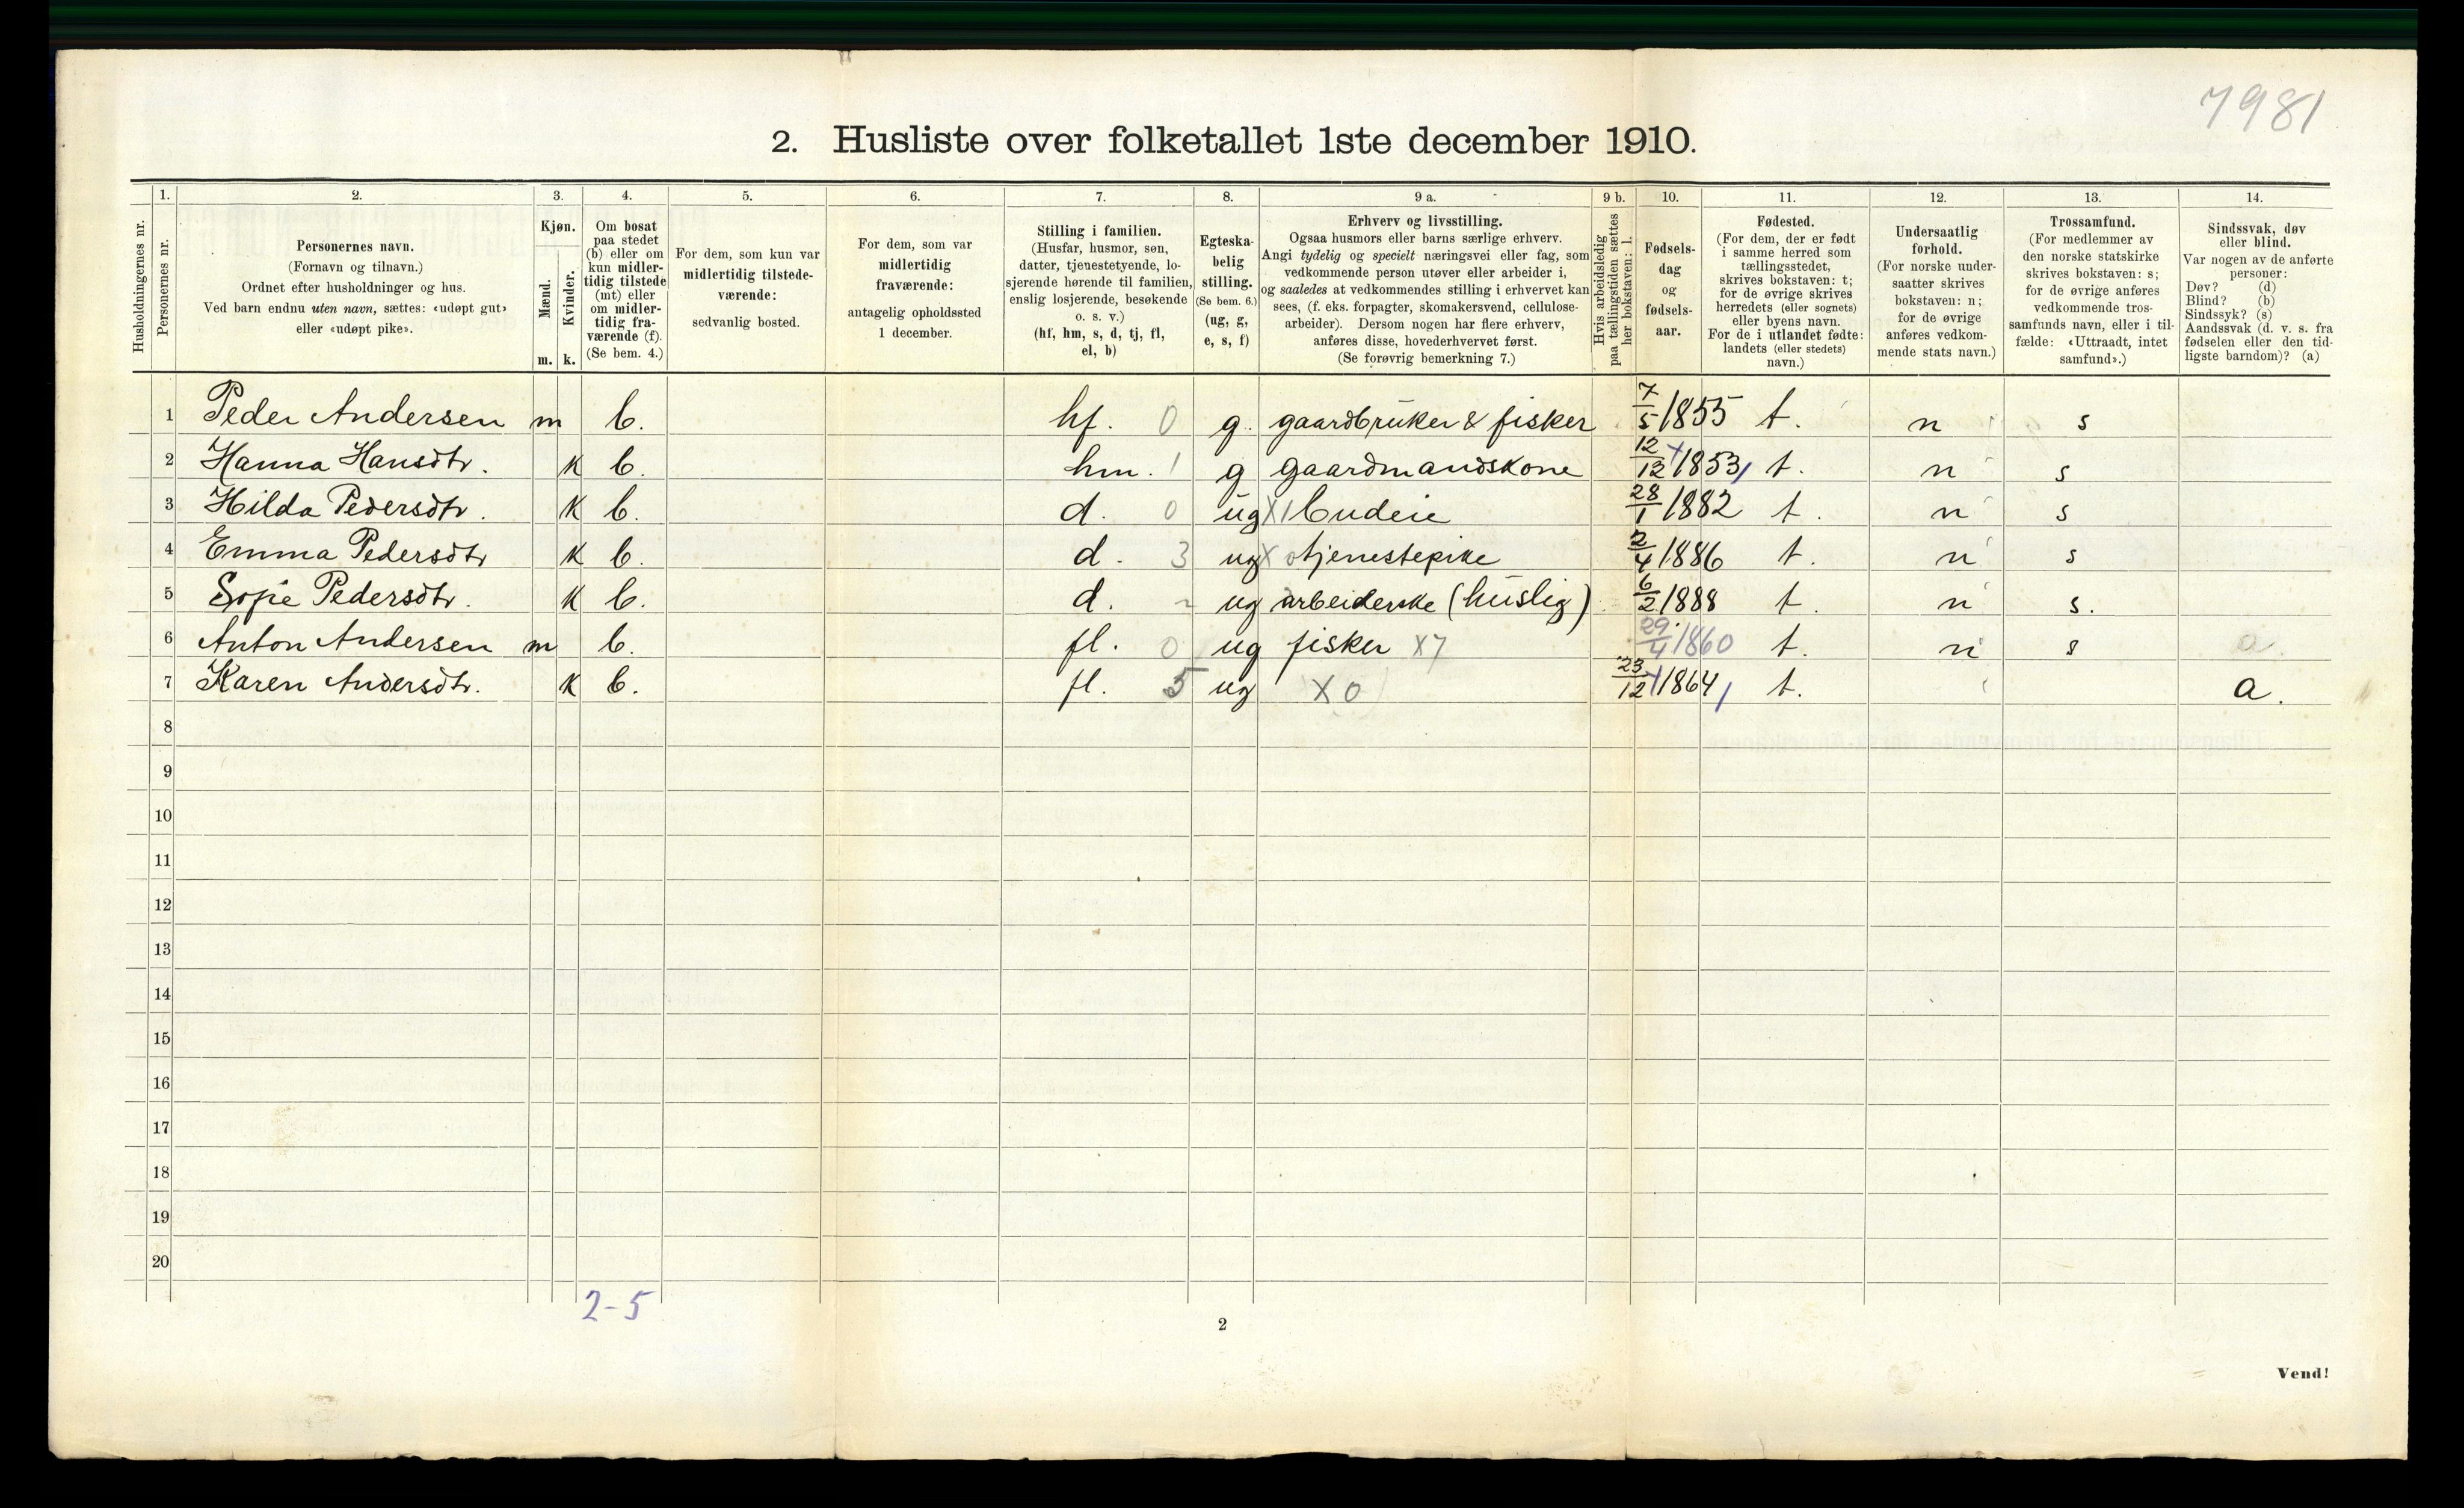 7981
2. Husliste over folketallet 1ste december 1910.
Husholdningernes nr.
1.
Personernes nr.
2.
Personernes navn.
(Fornavn og tilnavn.)
Ordnet efter husholdninger og hus.
Ved barn endnu uten navn, sættes: «udøpt gut»
eller «udøpt pike».
3.
Kjøn.
Mænd.
Kvinder.
m. k.
4.
Om bosat
paa stedet
(b) eller om
kun midler-
tidig tilstede
(mt) eller
om midler-
tidig fra-
værende (f).
(Se bem. 4.)
5.
For dem, som kun var
midlertidig tilstede-
værende:
sedvanlig bosted.
6.
For dem, som var
midlertidig
fraværende:
antagelig opholdssted
1 december.
7.
Stilling i familien.
(Husfar, husmor, søn,
datter, tjenestetyende, lo-
sjerende hørende til familien,
enslig losjerende, besøkende
o. s. v.)
(hf, hm, s, d, tj, fl,
el, b)
8.
Egteska-
belig
stilling.
(Se bem. 6.)
(ug, g,
e, s, f)
9 a.
Erhverv og livsstilling.
Ogsaa husmors eller barns særlige erhverv.
Angi tydelig og specielt næringsvei eller fag, som
vedkommende person utøver eller arbeider i,
og saaledes at vedkommendes stilling i erhvervet kan
sees, (f. eks. forpagter, skomakersvend, cellulose-
arbeider). Dersom nogen har flere erhverv,
anføres disse, hovederhvervet først.
(Se forøvrig bemerkning 7.)
9 b.
Hvis arbeidsledig
paa tællingstiden sættes
her bokstaven: l.
10.
Fødsels-
dag
og
fødsels-
aar.
11.
Fødested.
(For dem, der er født
i samme herred som
tællingsstedet,
skrives bokstaven: t;
for de øvrige skrives
herredets (eller sognets)
eller byens navn.
For de i utlandet fødte:
landets (eller stedets)
navn.)
12.
Undersaatlig
forhold.
(For norske under-
saatter skrives
bokstaven: n;
for de øvrige
anføres vedkom-
mende stats navn.)
13.
Trossamfund.
(For medlemmer av
den norske statskirke
skrives bokstaven: s;
for de øvrige anføres
vedkommende tros-
samfunds navn, eller i til-
fælde: «Uttraadt, intet
samfund».)
14.
Sindssvak, døv
eller blind.
Var nogen av de anførte
personer:
Døv? (d)
Blind? (b)
Sindssyk? (s)
Aandssvak (d. v. s. fra
fødselen eller den tid-
ligste barndom)? (a)
1 Peder Andersen m b. hf. 0 g. gaardbruker & fisker 7/5 1855 t. n s
2 Hanna Hansdtr. k b. hm. 1 g gaardmandskone 12/12 1853 t. n s
3 Hilda Pedersdtr. k b. d. 0 ug X1 budeie 28/1 1882 t. n s
4 Emma Pedersdtr k b. d. 3 ug X 0 tjenestepike 2/4 1886 t. n s
5 Sofie Pedersdtr. k b. d. ug arbeiderske (huslig) 6/2 1888 t. n s.
6 Anton Andersen m b. fl. 0 ug fisker X7 29/4 1860 t. n s a.
7 Karen Andersdtr. k b. fl. 5 ug X 0 23/12 1864 t. a.
8
9
10
11
12
13
14
15
16
17
18
19
20
2-5
2
Vend!